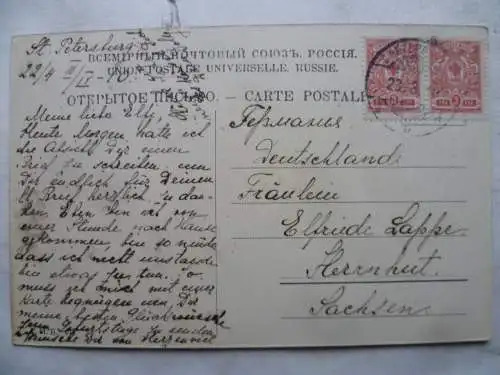 St. Petersburg
22/4
ВСЕМІРНЫЙ ПОЧТОВЫЙ СОЮЗЪ. РОССІЯ.
UNION POSTALE UNIVERSELLE. RUSSIE.
ОТКРЫТОЕ ПИСЬМО. – CARTE POSTALE
Meine liebe Elfy,
Heute Morgen hatte ich
die Absicht Dir einen
Brief zu schreiben, um
Dir endlich für Deinen
lb. Brief herzlich zu dan-
ken. Eben bin ich von
einer Stunde nach Hause
gekommen, bin so müde
dass ich nicht imstande
bin etwas zu tun. So
muss ich mich mit einer
Karte begnügen um Dir
meine besten Glückwünsche
zum Geburtstage zu senden
wünsche Dir von Herzen viel
Германія
Deutschland
Fräulein
Elfriede Lappe
Herrnhut
Sachsen